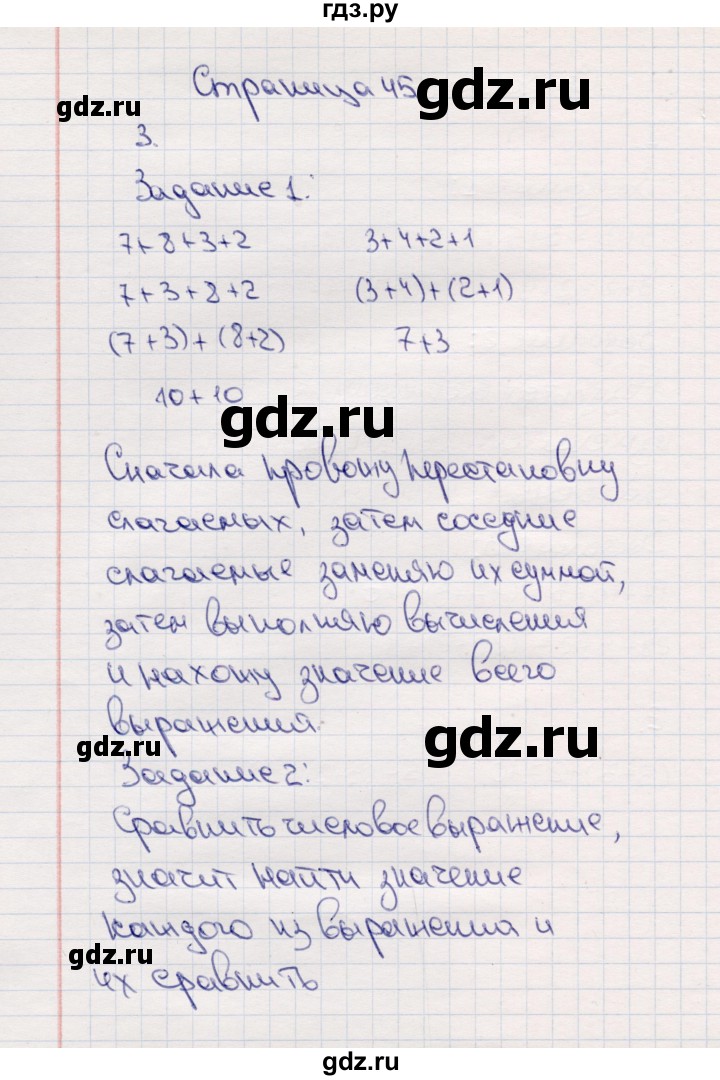 гдз.ру
Страница 45
gdz.ru
gdz.ru
3.
Задание 1:
7+8+3+2 3+4+2+1
7+3+8+2 (3+4)+(2+1)
gdz.ru
(7+3)+(8+2) 7+3
10+10
gdz.ru
Сначала провожу перестановку
слагаемых, затем соседние
gdz.ru
слагаемые заменяю их суммой,
затем выполняю вычисления
и нахожу значение всего
выражения.
gdz.ru
gdz.ru
Задание 2:
Сравнить числовое выражение,
значит найти значение
каждого из выражения и
gdz.ru
их сравнить
gdz.ru